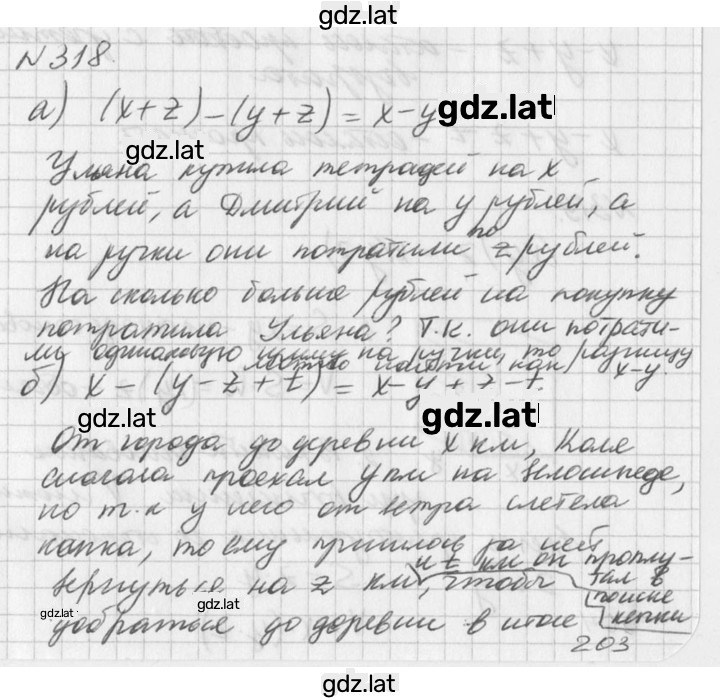 gdz.lat
N318.
а) (x+z)-(y+z) = x-y
gdz.lat
gdz.lat
Ульяна купила тетрадей на x
рублей, а Дмитрий на y рублей, а
на ручки они потратили по z рублей.
На сколько больше рублей на покупку
потратила Ульяна? Т.к. они потрати-
му одинаковую сумму на ручки, то разницу
можно найти как x-y
б) x - (y - z + t) = x-y+z-t.
gdz.lat
gdz.lat
От города до деревни x км, Коля
сначала проехал y км на велосипеде,
но т.к у него от ветра слетела
кепка, то ему пришлось за ней
вернуться на z км, чтобы
и t км он проплу-
тал в
поиске
кепки
gdz.lat
gdz.lat
добраться до деревни в итоге
203
gdz.lat